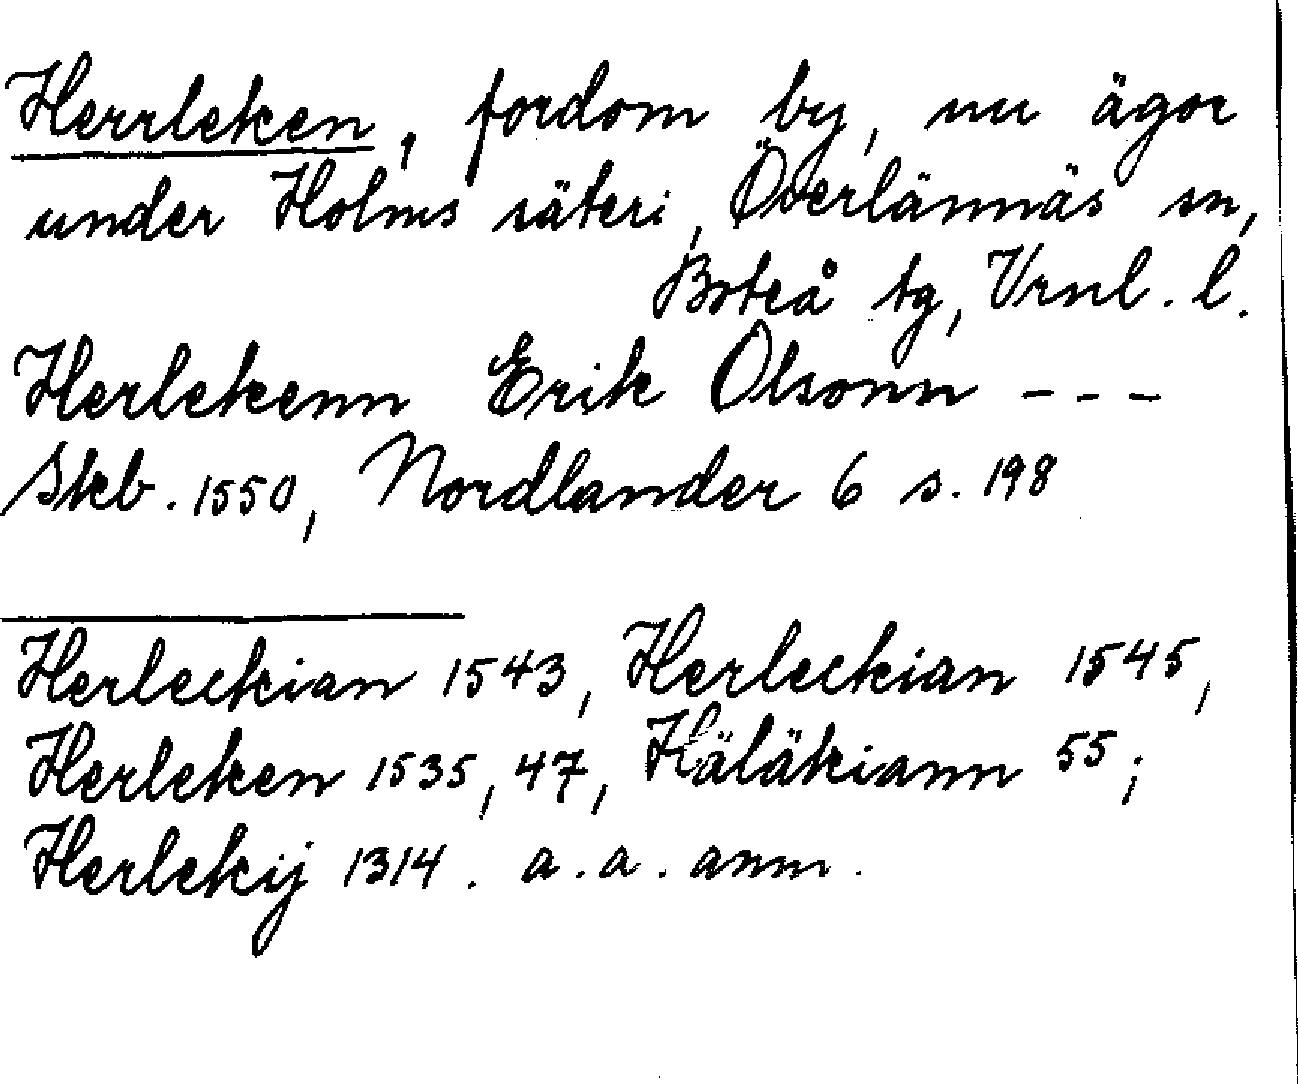 Herrleken, fordom by, nu ägor
under Holms säteri, Överlännäs sn,
Boteå tg, Vrnl. l.
Herlekenn Erik Olsonn - - -
Skb. 1550, Nordlander 6 s. 198
Herleckian 1543, Herleckian 1545,
Herleken 1535, 47, Häläkiann 55;
Herlekij 1314. a. a. anm.